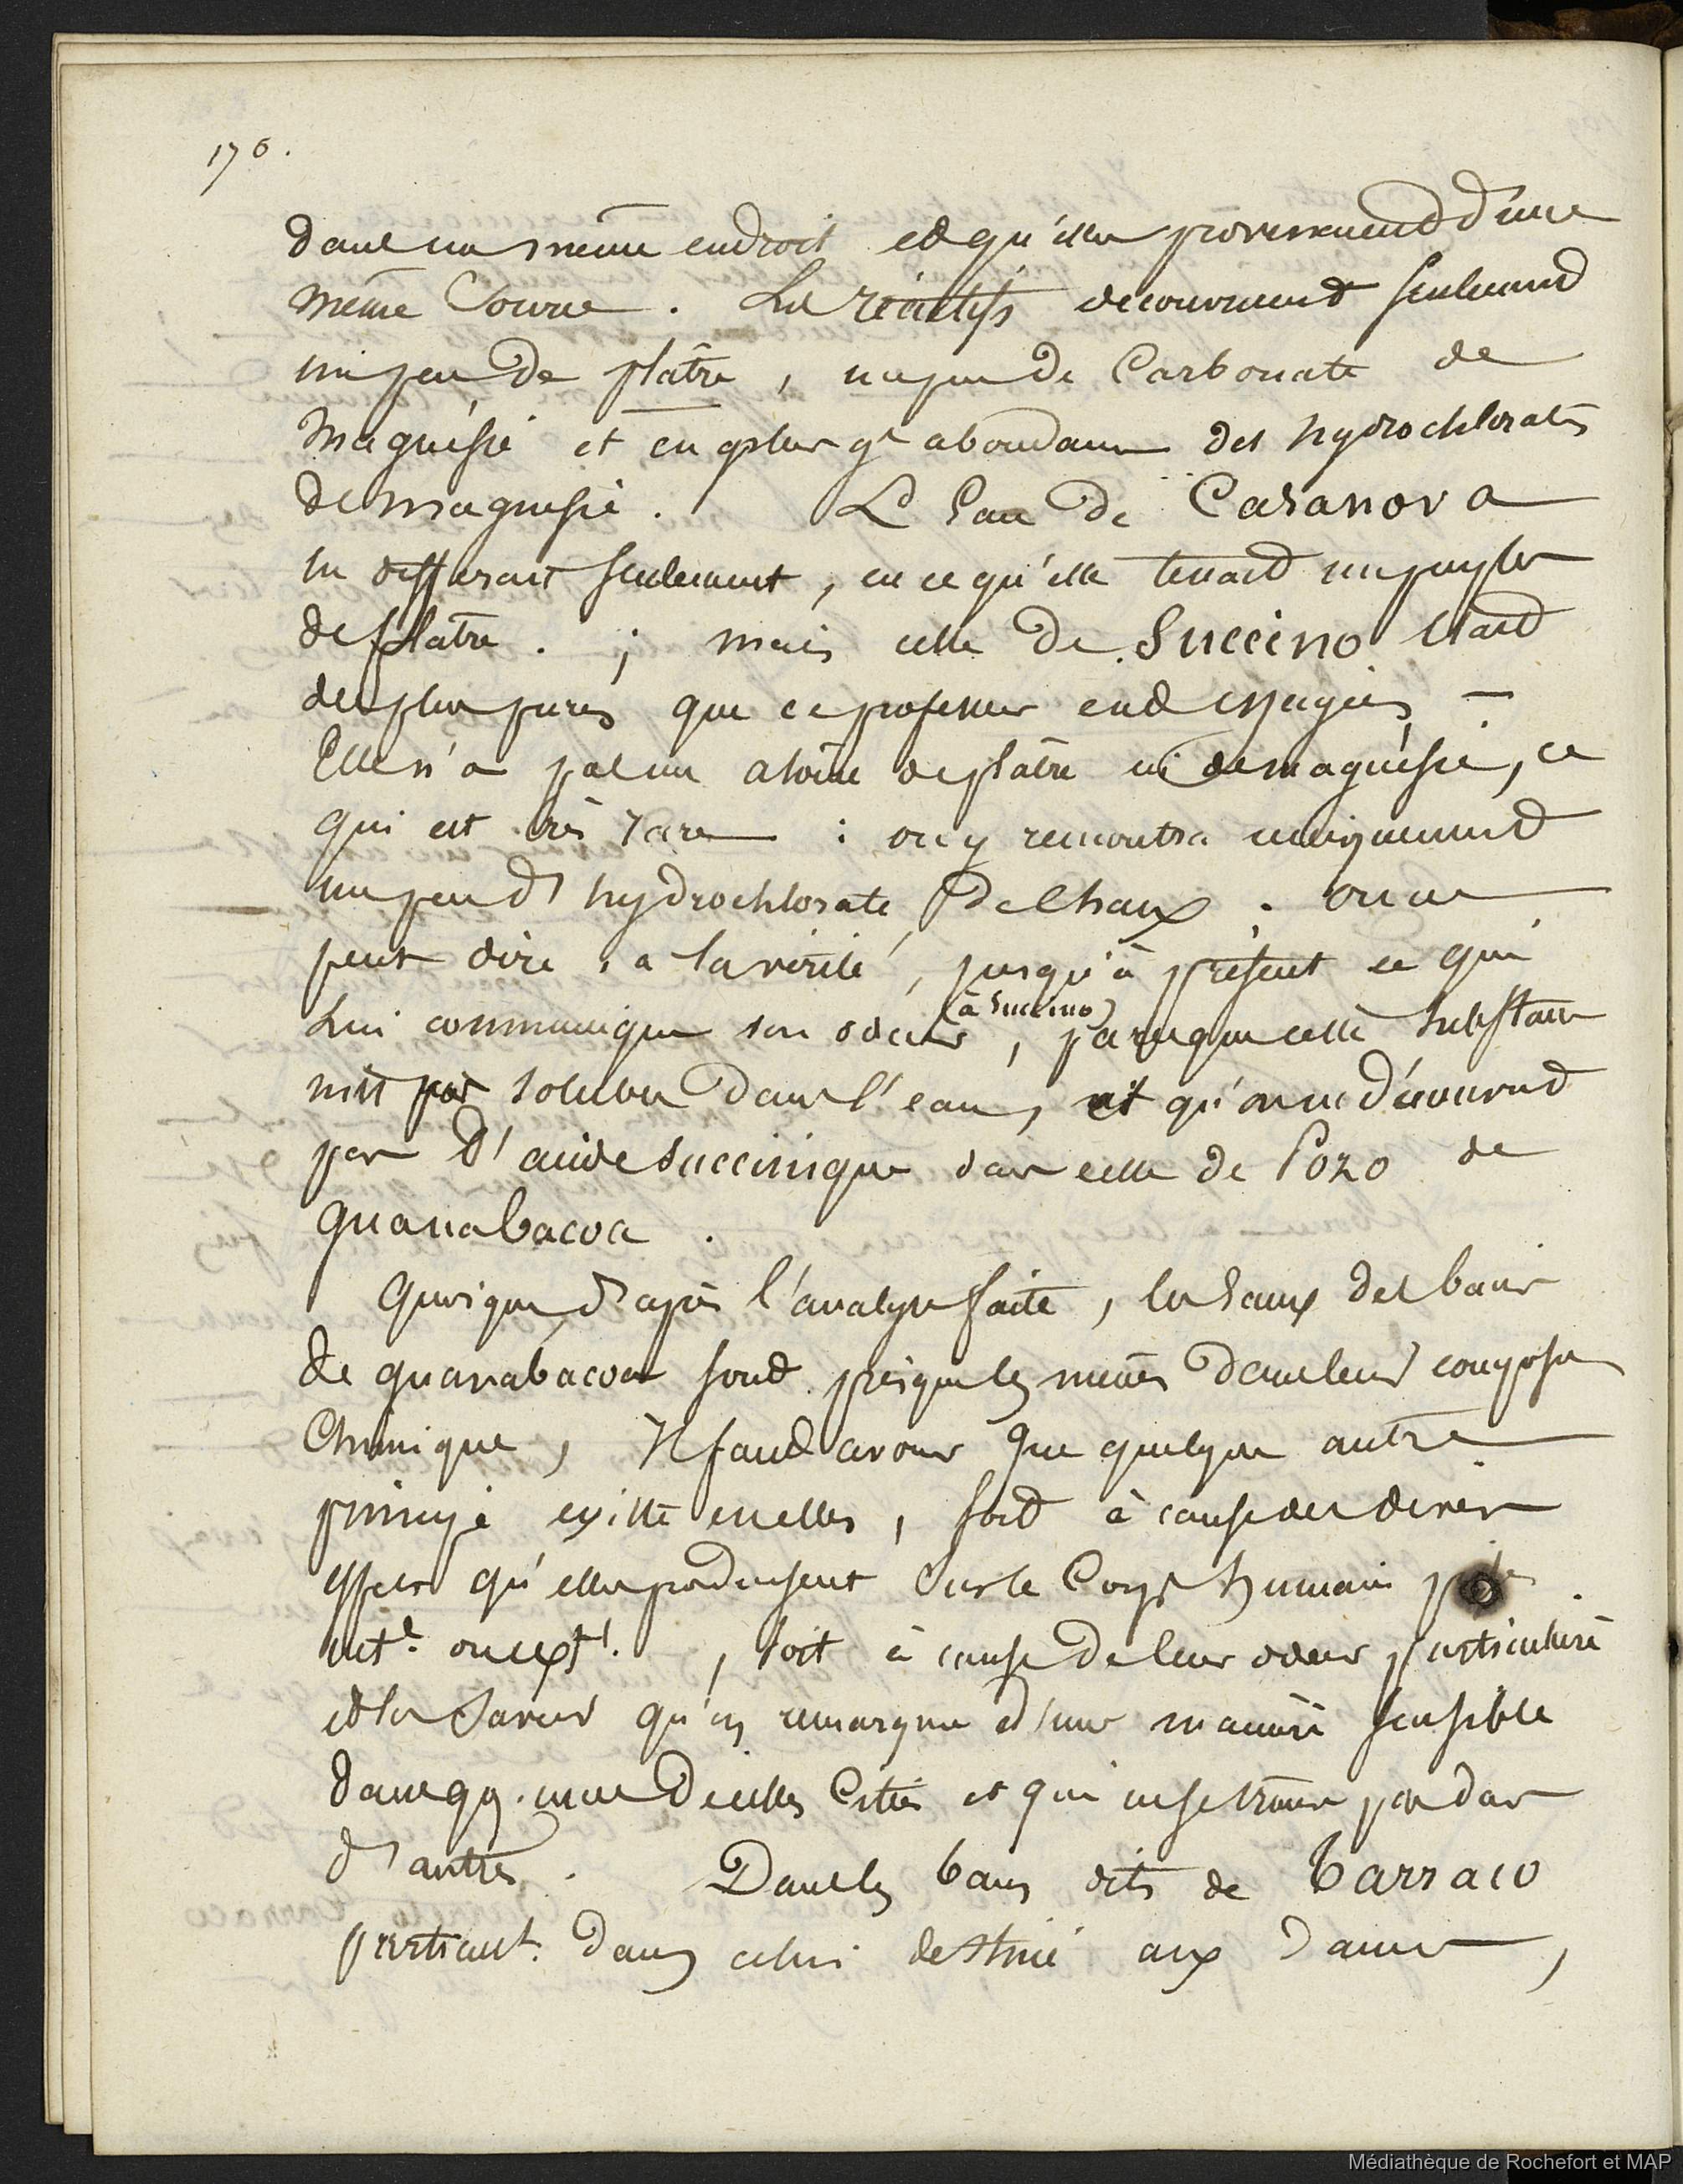 176.
dans un même endroit et qu'elles proviennent d'une
même source. Les réactifs découvrent seulement
un peu de plâtre, un peu de Carbonate de
Magnésie et en plus gde abondance des hydrochlorates
de magnésie. L'Eau de Casanova
en différait seulement, en ce qu'elle tenait un peu plus
de plâtre. ; mais celle de Succino était
des plus pures que ce professeur eut essayées –
Elle n'a pas un atome de plâtre ni de magnésie, ce
qui est très rare : on y rencontra uniquement
un peu d'hydrochlorate de chaux. on ne
peut dire, a la vérité, jusqu'à présent ce qui
lui communique son odeur (à Succino), parceque cette substance
n'est pas soluble dans l'eau, et qu'on ne découvrit
pas d'acide succinique dans celle de Pozo de
guanabacoa.
Quoique, d'après l'analyse faite, les Eaux des bains
de guanabacoa sont presque les mêmes dans leur compose
Chimique, Il faut avouer que quelque autre
principe existe en elles, soit à cause des divers
effets qu'elles produisent sur le Corps humain
intt ou extt, soit à cause de leur odeur particulière
et la saveur qu'on remarque d'une manière sensible
dans qq. une d'elles et qui ne se trouve pas dans
d'autres. Dans les bains dits de Barraco
particult. dans celui destiné aux Dames,
Médiathèque de Rochefort et MAP